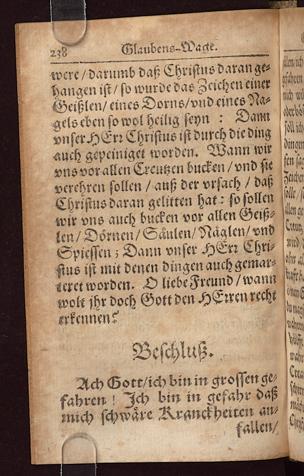 238 Glaubens-Wacke.
were / darumb daß Christus daran ge-
hangen ist / so wurde das Zeichen einer
Geißlen / eines Dorns / vnd eines Na-
gels eben so wol heilig seyn : Dann
vnser HErr Christus ist durch die ding
auch gepeiniget worden. Wann wir
vns vor allen Creutzen bucken / vnd sie
verehren sollen / auß der vrsach / daß
Christus daran gelitten hat : so sollen
wir vns auch bucken vor allen Geiß-
len / Dörnen / Säulen / Näglen / vnd
Spiessen ; Dann vnser HErr Chri-
stus ist mit denen dingen auch gemar-
teret worden. O liebe Freund / wann
wolt jhr doch Gott den HErren recht
erkennen?
Beschluß.
Ach Gott / ich bin in grossen ge-
fahren ! Ich bin in gefahr daß
mich schwäre Kranckheiten an-
fallen /